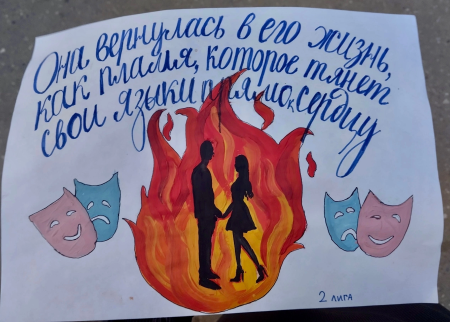 Она вернулась в его жизнь,
как пламя, которое тянет
свои языки прямо к сердцу
2 лига